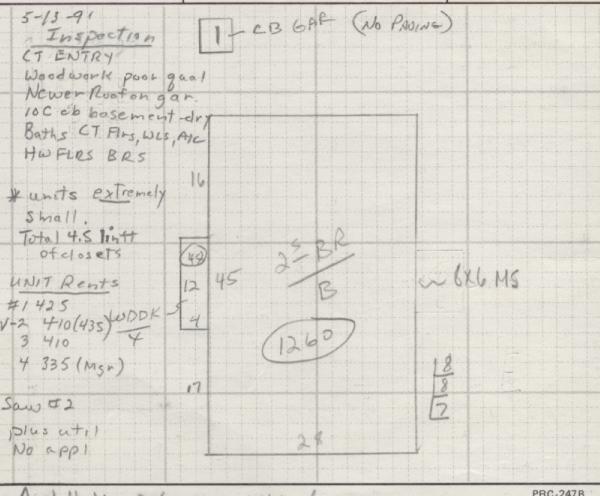 5-13-91
Inspection
CT ENTRY
Woodwork poor qual
Newer Roof on gar.
10C cb basement-dry
Baths CT Flrs, WLS, A/C
HW FLRS BRS
* units extremely
small.
Total 4.5 lin ft
of closets
UNIT Rents
#1 425
V-2 410(435)
3 410
4 335 (Mgr)
Saw #2
plus util
No appl
1 - CB GAR (NO PAVING)
16
48
12
4
WDDK
4
17
45
2S BR
B
1260
28
6X6 MS
8
8
7
PRC-247B